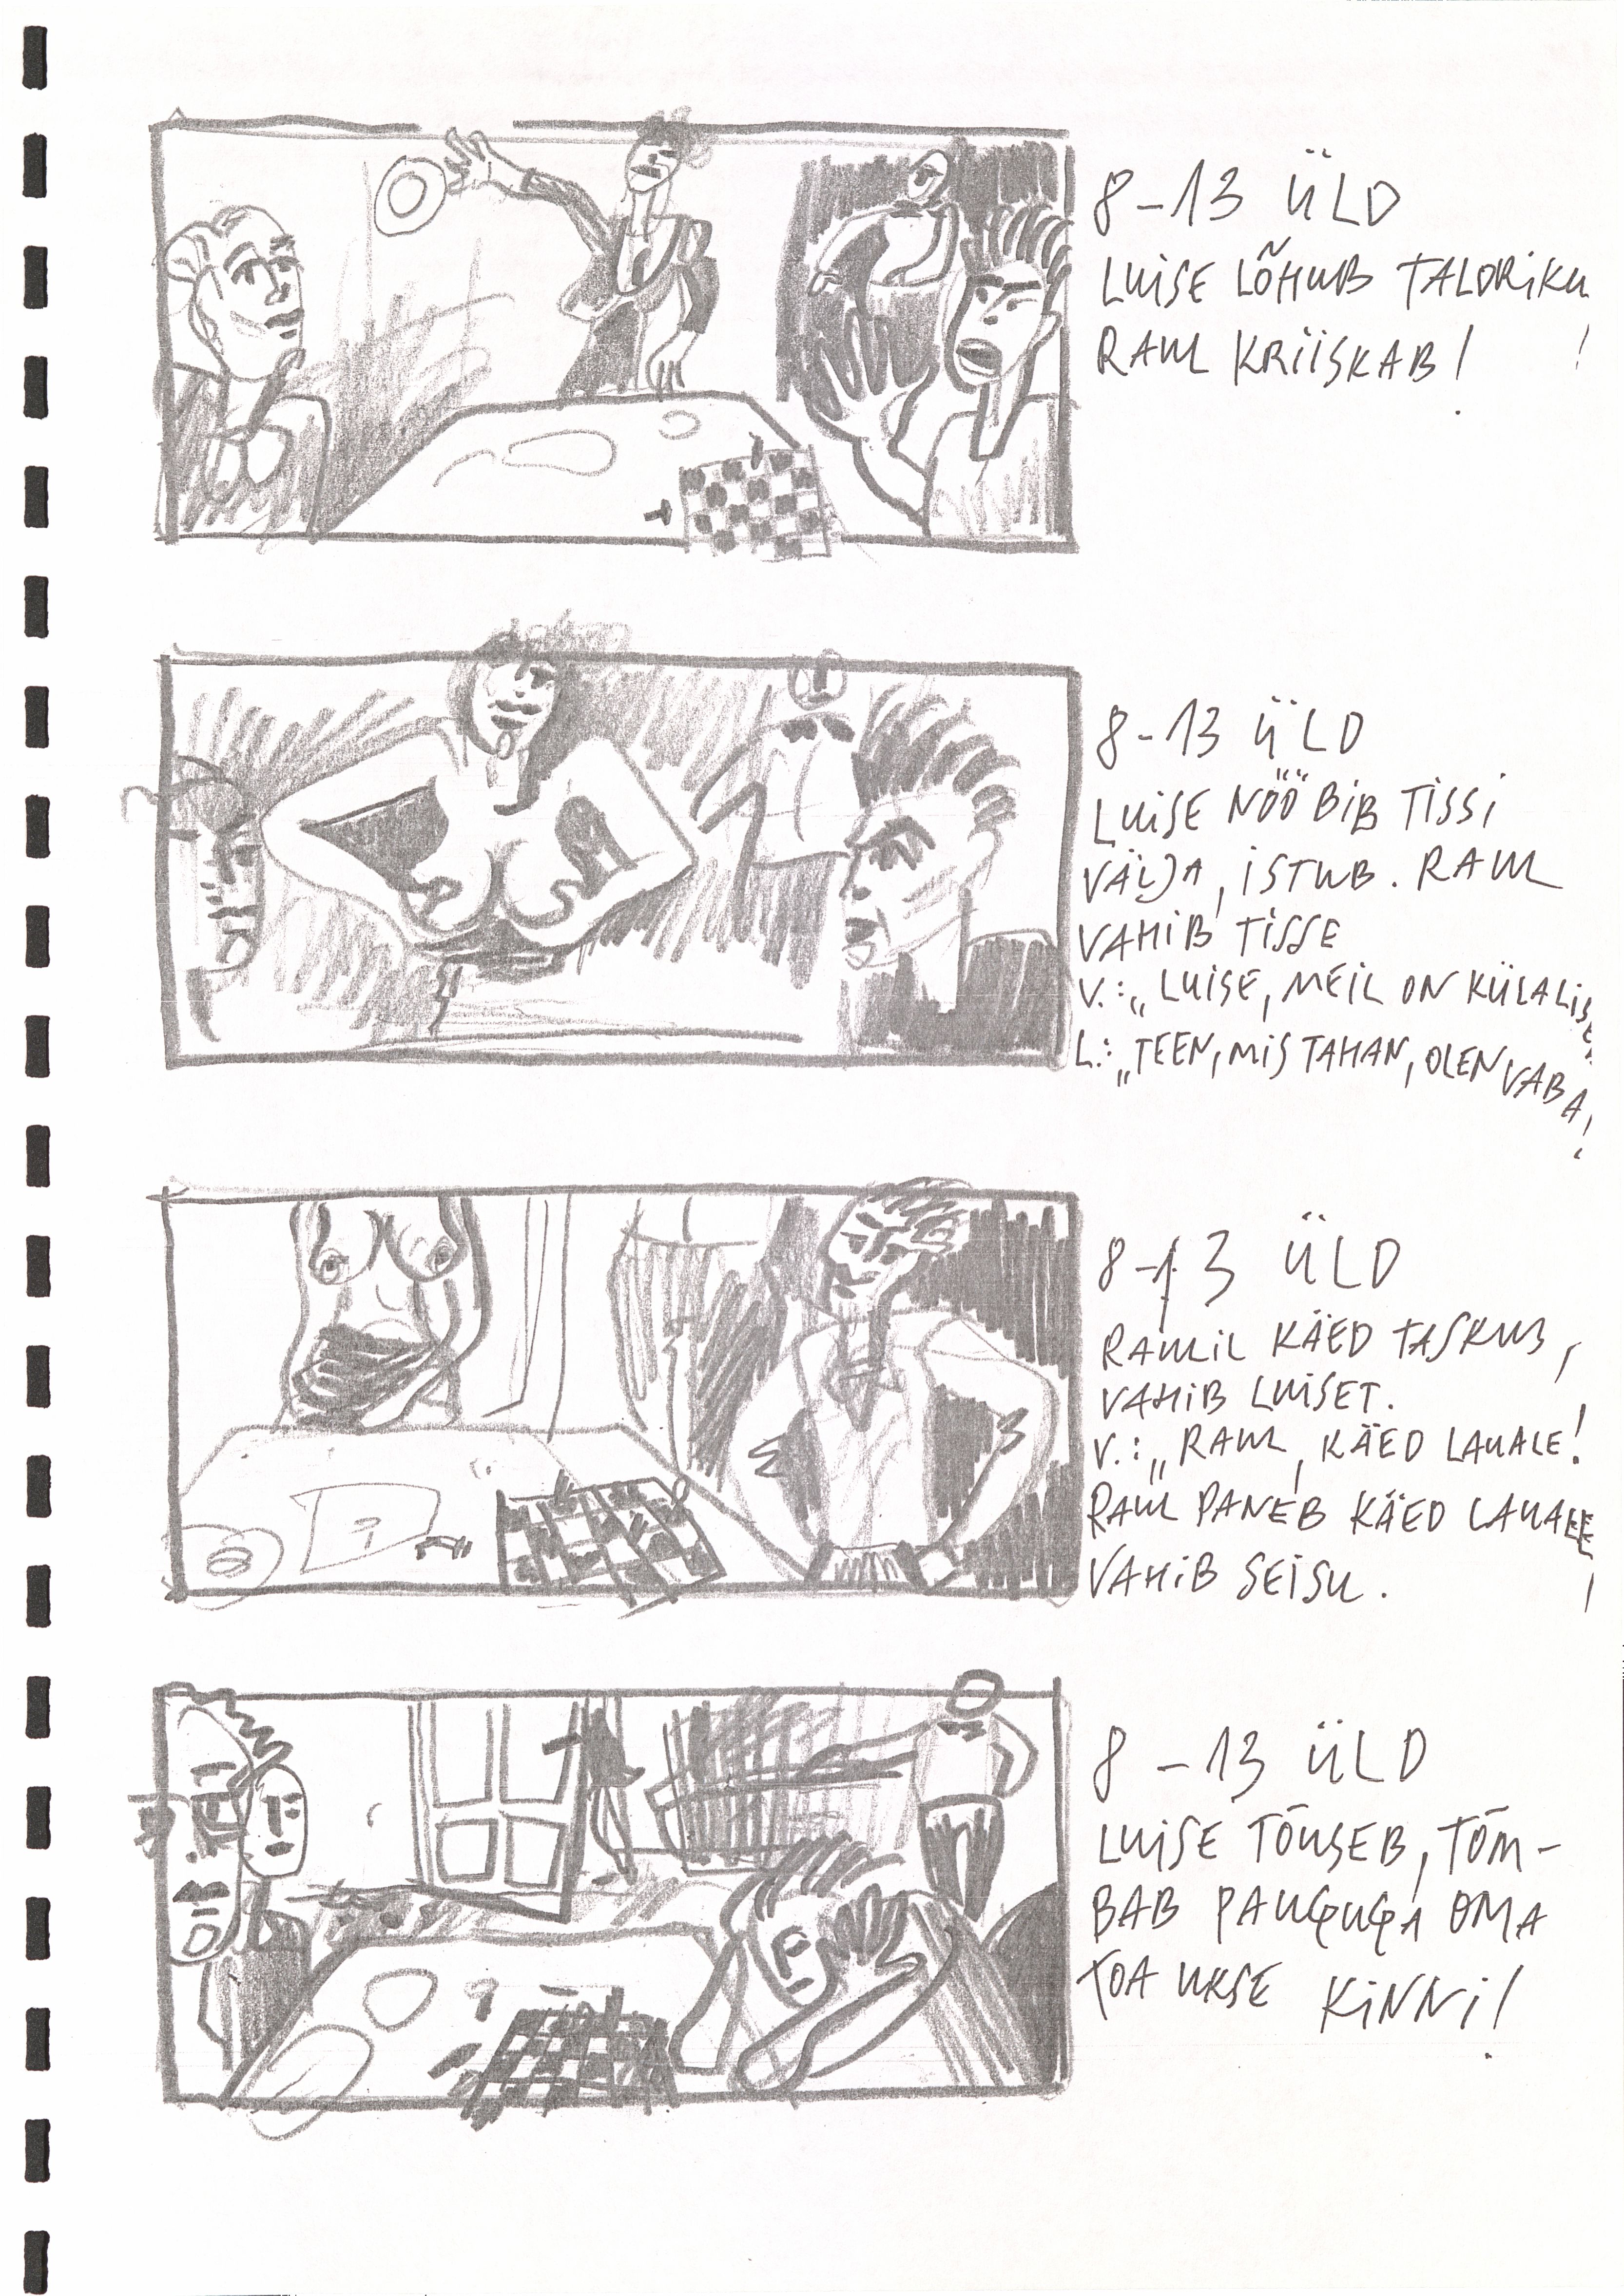 8-13 ÜLD
LUISE LÕHUB TALDRIKU
RAUL KRIISKAB! !
8-13 ÜLD
LUISE NÖÖBIB TISSI
VÄLJA, ISTUB. RAUL
VAHIB TISSE
V.: „LUISE, MEIL ON KÜLALISED
L.: „TEEN, MIS TAHAN, OLEN VABA!
8-13 ÜLD
RAULIL KÄED TASKUS,
VAHIB LUISET.
V.: „RAUL, KÄED LAUALE!
RAUL PANEB KÄED LAUALE,
VAHIB SEISU.
8-13 ÜLD
LUISE TÕUSEB, TÕM-
BAB PAUGUGA OMA
TOA UKSE KINNI!